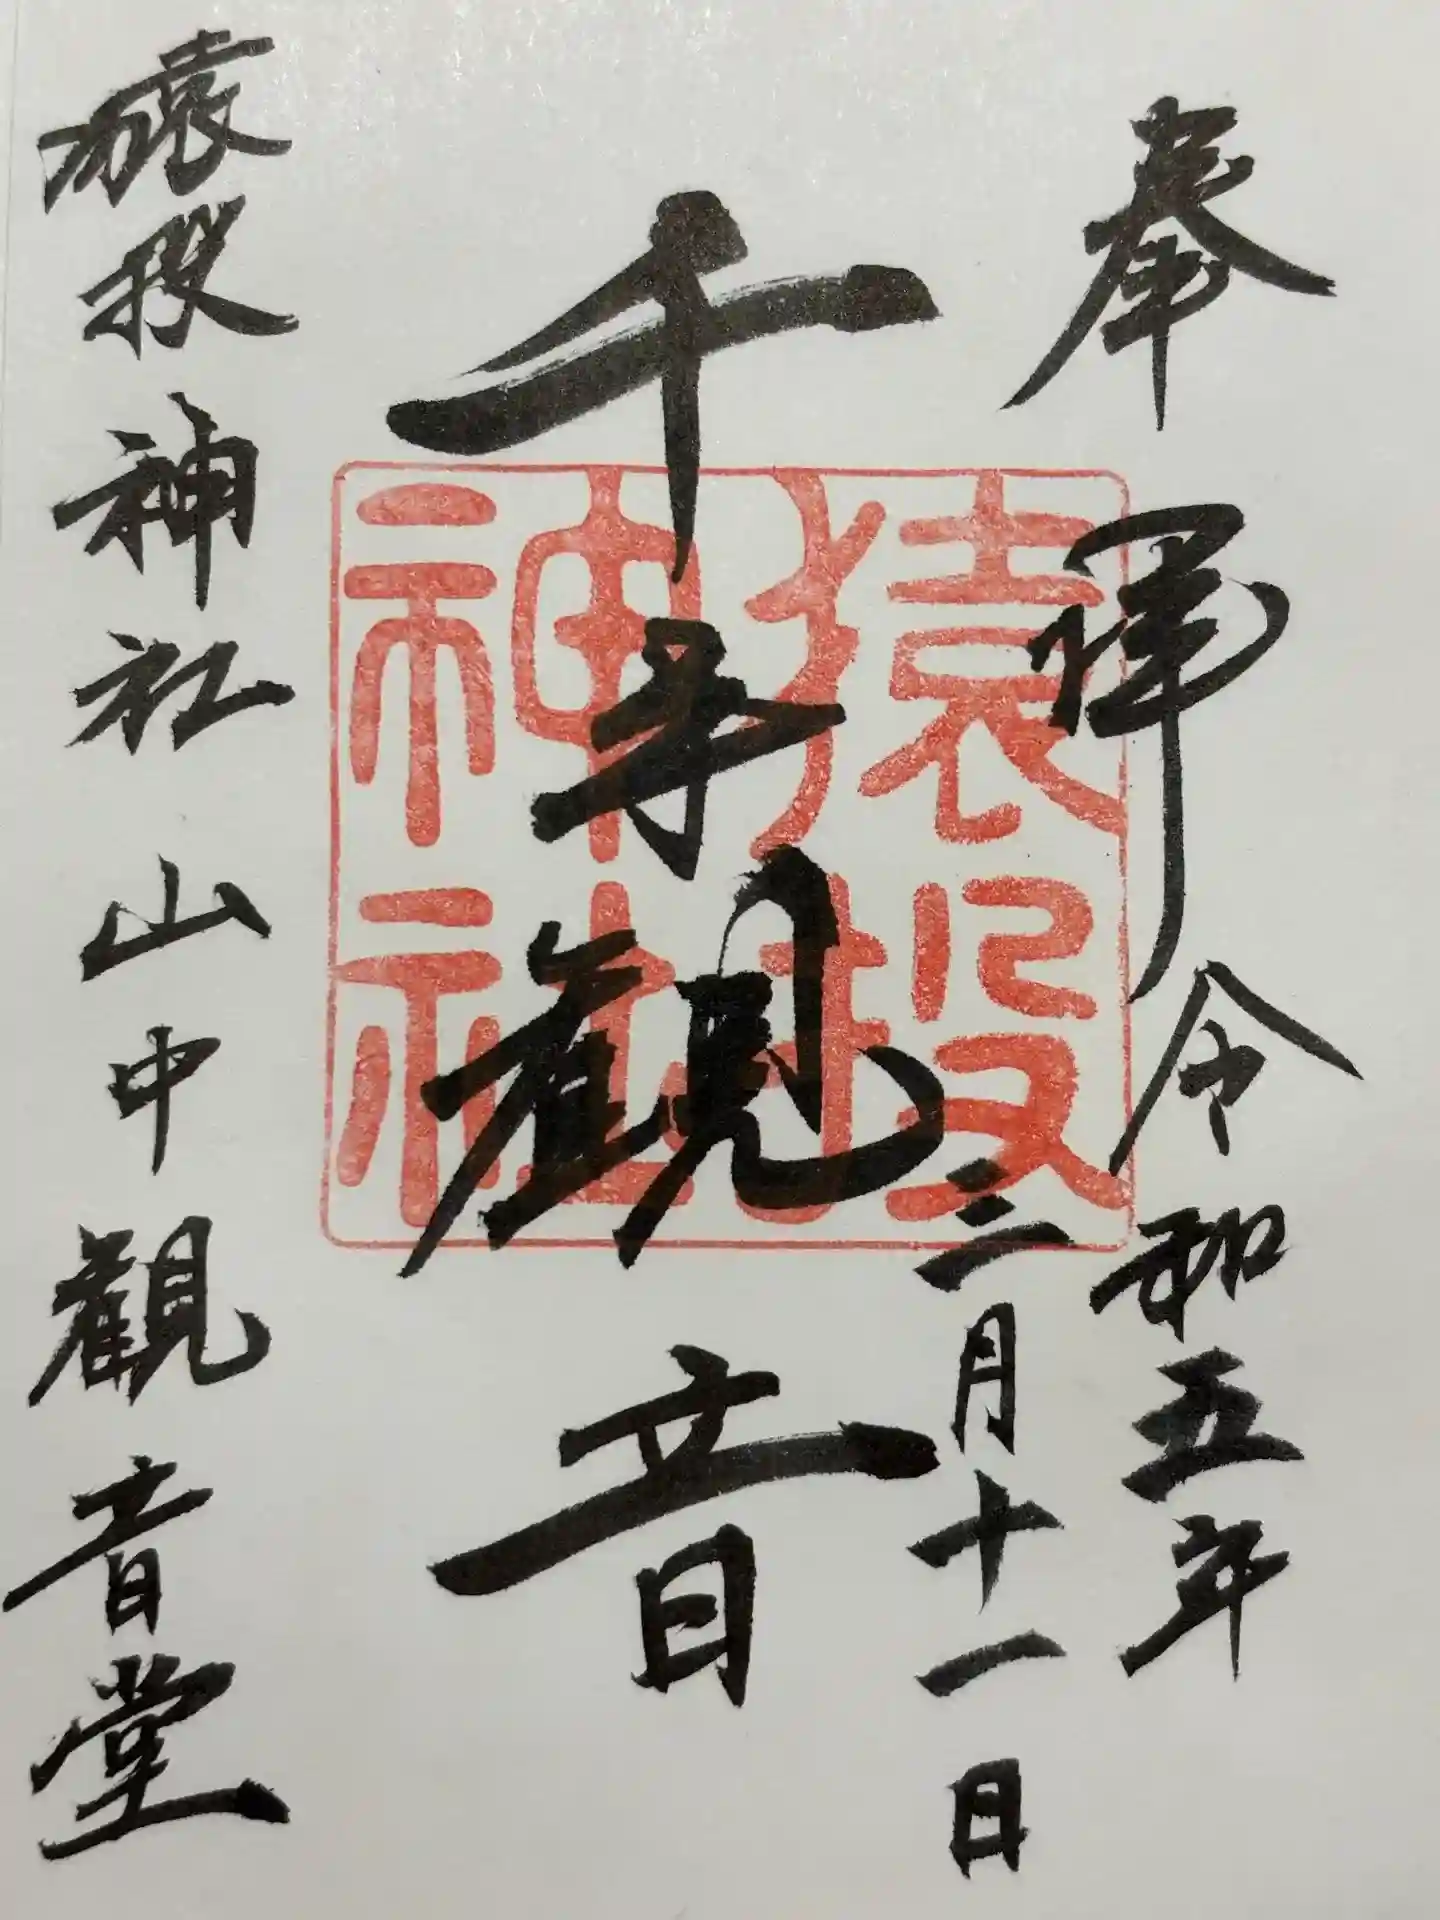 奉拝 令和五年
三月十一日
千手觀音
猿投神社
猿投神社 山中觀音堂